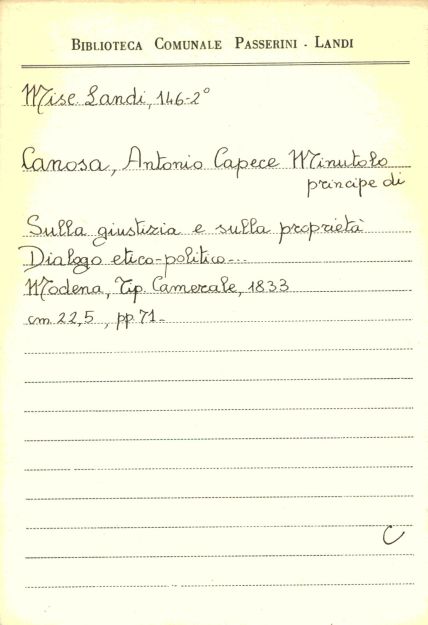 BIBLIOTECA COMUNALE PASSERINI - LANDI
Misc. Landi, 146-2°
Canosa, Antonio Capece Minutolo
principe di
Sulla giustizia e sulla proprietà
Dialogo etico-politico...
Modena, Tip. Camerale, 1833
cm 22,5, pp 71-
C